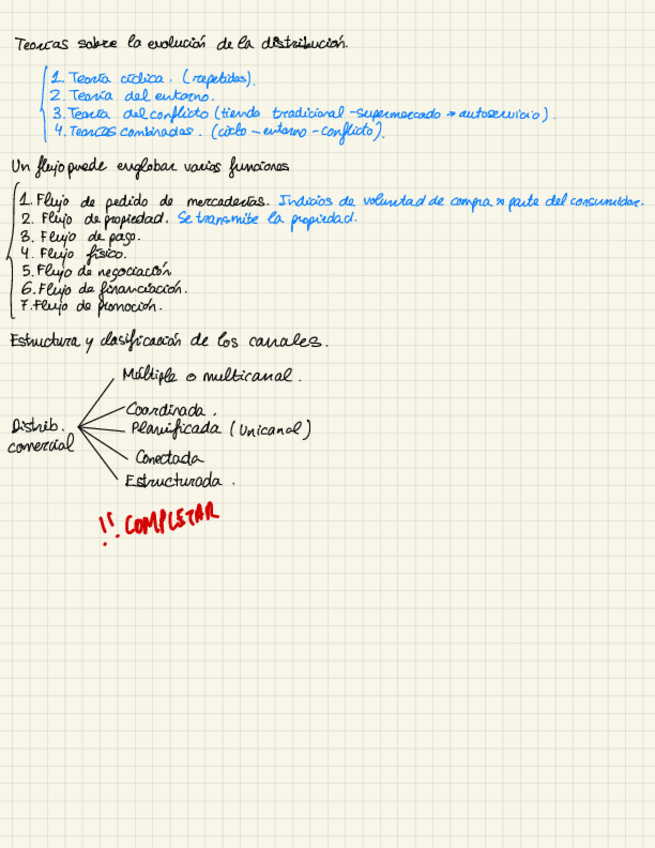 Teorías sobre la evolución de la distribución.
1. Teoría cíclica. (repetidas).
2. Teoría del entorno.
3. Teoría del conflicto (tienda tradicional - supermercado → autoservicio).
4. Teorías combinadas. (ciclo - entorno - conflicto).
Un flujo puede englobar varias funciones
1. Flujo de pedido de mercaderías. Indicios de voluntad de compra x parte del consumidor.
2. Flujo de propiedad. Se transmite la propiedad.
3. Flujo de pago.
4. Flujo físico.
5. Flujo de negociación
6. Flujo de financiación.
7. Flujo de promoción.
Estructura y clasificación de los canales.
Múltiple o multicanal.
Coordinada.
Distrib. Planificada (Unicanal)
comercial Conectada
Estructurada.
!! COMPLETAR